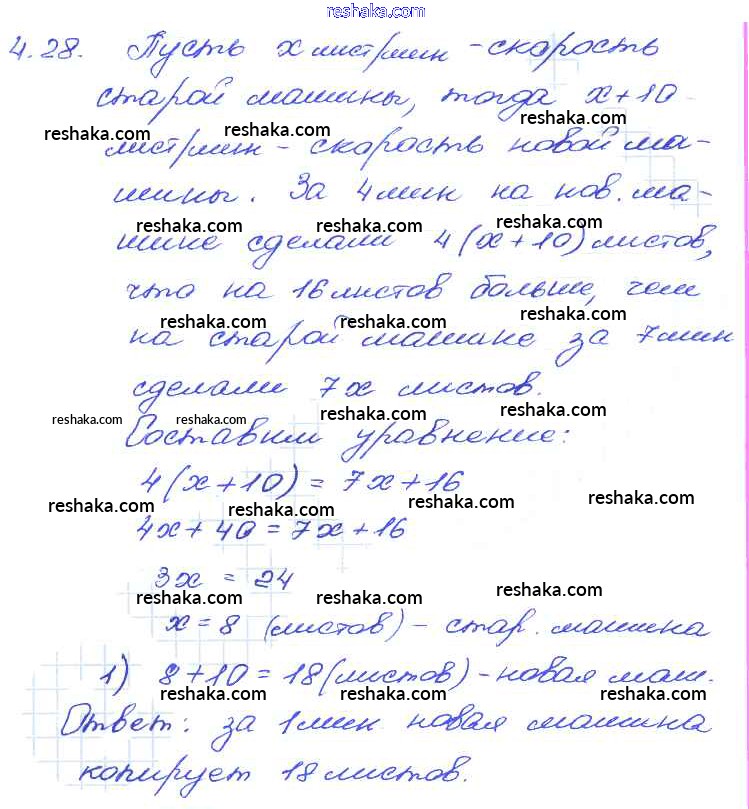 reshaka.com
4.28. Пусть x лист/мин - скорость
старой машины, тогда x+10
reshaka.com reshaka.com reshaka.com
лист/мин - скорость новой ма-
шины. За 4 мин на нов. ма-
reshaka.com reshaka.com reshaka.com
шине сделали 4(x+10) листов,
что на 16 листов больше, чем
reshaka.com reshaka.com reshaka.com
на старой машине за 7 мин
сделали 7x листов.
reshaka.com reshaka.com reshaka.com reshaka.com
Составим уравнение:
4(x+10) = 7x+16
reshaka.com reshaka.com reshaka.com reshaka.com
4x+40=7x+16
3x = 24
reshaka.com reshaka.com reshaka.com
x=8 (листов) - стар. машина
1) 8+10=18(листов)-новая маш.
reshaka.com reshaka.com reshaka.com
Ответ: за 1 мин новая машина
reshaka.com reshaka.com reshaka.com
копирует 18 листов.